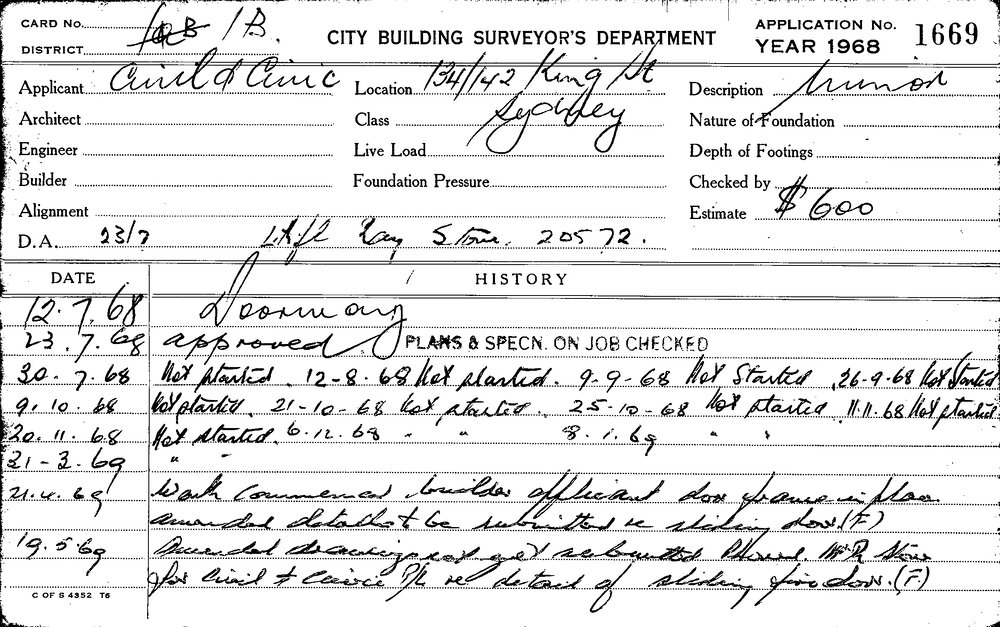 CARD No. 1B.
CITY BUILDING SURVEYOR'S DEPARTMENT
APPLICATION No. 1669
DISTRICT
YEAR 1968
Applicant Civil & Civic
Location 134/142 King St
Sydney
Description
Architect
Class
Nature of Foundation
Engineer
Live Load
Depth of Footings
Builder
Foundation Pressure
Checked by
Alignment
Estimate $600
D.A. 23/7 Ray Stone. 20572.
DATE HISTORY
12.7.68
23.7.68 approved PLANS & SPECN. ON JOB CHECKED
30.7.68 Not started. 12-8-68 Not started. 9-9-68 Not Started. 26-9-68 Not Started
9.10.68 Not started. 21-10-68 Not started. 25-10-68 Not started 11.11.68 Not started
20.11.68 Not started. 6.12.68 " " 8.1.69 " "
31-3.69 " "
21.4.69 Work commenced, builder applicant door frame in place
amended details to be submitted re sliding door. (F)
19.5.69 Amended drawings not yet submitted Phoned Mr R Stone
for Civil & Civic P/L re detail of sliding fire door. (F)
C OF S 4352 T6